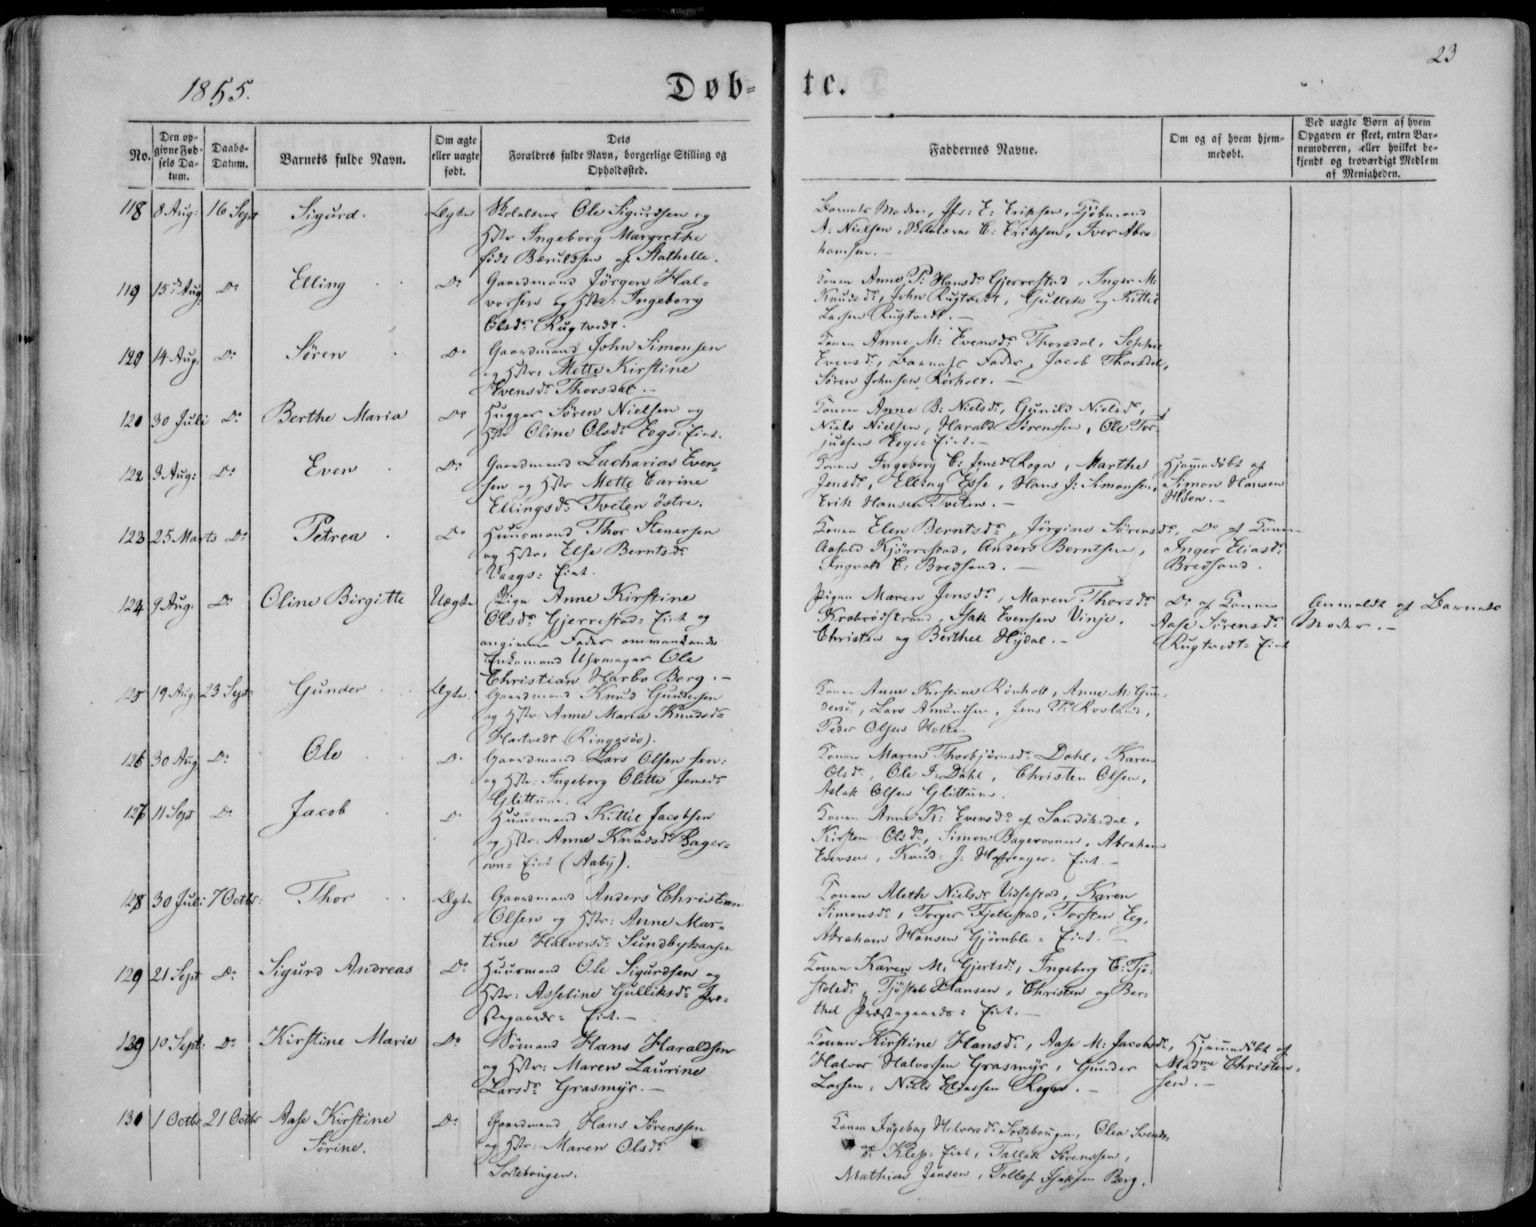 23
1855.
Døb-
te.
No.
Den op-
givne Fød-
sels Da-
tum.
Daabs-
Datum.
Barnets fulde Navn.
Om ægte
eller uægte
født.
Dets
Forældres fulde Navn, borgerlige Stilling og
Opholdssted.
Faddernes Navne.
Om og af hvem hjem-
medøbt.
Ved uægte Børn af hvem
Opgaven er skeet, enten Bar-
nemoderen, eller hvilket be-
kjendt og troværdigt Medlem
af Menigheden.
118 8 Aug: 16 Sept Sigurd. Ægte Skolelærer Ole Sigurdsen og
Hstr Ingeborg Margrethe
født Beruldsen af Stathelle.
Barnets Moder, E: Eriksen,
A: Nielsen, E: Eriksen, Iver Abra-
hamsen.
119 15 Aug Do Elling Do Gaardmand Jörgen Hal-
vorsen og Hstr: Ingeborg
Olsdr Rugtvedt.
Konen Anne P: Hansdr Gjerrestad, Inger M:
Knudsdr, John Rugtvedt, Gullik og Kittil
Larsen Rugtvedt.
120 14 Aug: Do Sören Do Gaardmand John Simonsen
og Hstr: Mette Kirstine
Evensdr Thorsdal.
Konen Anne M: Evensdr Thorsdal, Sophie
Evensdr, Barnets Fader, Jacob Thorsdal,
Sören Johnsen Rörholt.
120 30 Juli Do Berthe Maria Do Hugger Sören Nielsen og
Hstr Oline Olsdr Eegs: Eiet.
Konen Anne B: Nielsdr, Gunild Nielsdr,
Niels Nielsen, Harald Sörensen, Ole Tor-
juesen Eegs: Eiet.
122 3 Aug: Do Even Do Gaardmand Zacharias Even-
sen og Hstr Mette Carine
Ellingsdr Tveten östre.
Konen Ingeborg C: Jensdr Rogn, Marthe
Jensdr, Elling Esse, Hans J: Simonsen,
Erik Hansen Tveten.
Hjemmedöbt af
Simon Hansen
123 25 Marts Do Petrea Do Huusmand Thor Stenersen
og Hstr: Else Berntsdr
Vaags: Eiet.
Konen Elen Berntsdr, Jörgine Sörensdr,
Aasold Kjörrestad, Anders Berntsen,
Ingvald C: Bredsand.
Do af Konen
Inger Eliasdr
Bredsand.
124 9 Aug: Do Oline Birgitte Uægte Pige Anne Kirstine
Olsdr Gjerrestad: Eiet og
angiven Fader ommeldende
Enkemand Uhrmager Ole
Christian Harbo Borg.
Pigen Maren Jensdr, Maren Thorsdr
Krabröstrand, Isak Evensen Vinje,
Christen og Berthel Hydal.
Do af Konen
Aase Sörensdr
Rugtvedt: Eiet
Anmeldt af Barnets
Moder.
125 19 Aug: 23 Sept Gunder Ægte Gaardmand Knud Gundersen
og Hstr: Anne Maria Knudsdr
Hartvedt (Ringsöe).
Konen Anne Kirstine Rönholt, Anne M: Gun-
dersdr, Lars Amundsen, Jens P: Rosland,
Peder Olsen Holte.
126 30 Aug Do Ole Do Gaardmand Lars Olsen sen:
og Hstr: Ingeborg Olette Jensdr
Glittum.
Konen Maren Thorbjörnsdr Dahl, Karen
Olsdr, Ole I: Dahl, Christen Olsen,
Aslak Olsen Glittum.
127 11 Sept Do Jacob Do Huusmand Kittil Jacobsen
og Hstr: Anne Knudsdr Bager-
ovn: Eiet (Aaby).
Konen Anne K: Evensdr af Sandökedal,
Kirsten Olsdr, Simon Bagerovnen, Abraham
Evensen, Knud J: Eiet.
128 30 Juli 7 Octbr: Thor Ægte Gaardmand Anders Christian
Olsen og Hstr: Anne Mar-
tine Halvorsdr Sundbykaasen
Konen Aleth Nielsdr Vissestad, Karen
Simonsdr, Torger Fjellestad, Torsten Eeg,
Abraham Hansen Gjömble: Eiet.
129 21 Sept Do Sigurd Andreas Do Huusmand Ole Sigurdsen og
Hstr: Asseline Gulliksdr Præ-
stegaards: Eiet.
Konen Karen M: Gjertsdr, Ingeborg C: Tjö-
stolsdr, Tjöstel Hansen, Christen og Ber-
thel Præstegaards: Eiet.
129 10 Sept: Do Kirstine Marie Do Sömand Hans Haraldsen
og Hstr: Maren Laurine
Larsdr Grasmyr.
Konen Kirstine Hansdr, Aase M: Jacobsdr,
Halvor Halvorsen Grasmyr, Gunder
Larsen, Niels Eliassen Rogn.
Hjemmedöbt af
Madme Christen-
sen.
130 1 Octbr 21 Octbr Aase Kirstine
Sörine.
Do Gaardmand Hans Sörensen
og Hstr: Maren Olsdr
Sortebougen.
Konen Ingebog Halvorsdr Sortebougen, Olea Svends-
dr Klep: Eiet, Tallak Sörensen,
Mathias Jensen, Tollef Isaksen Berg.